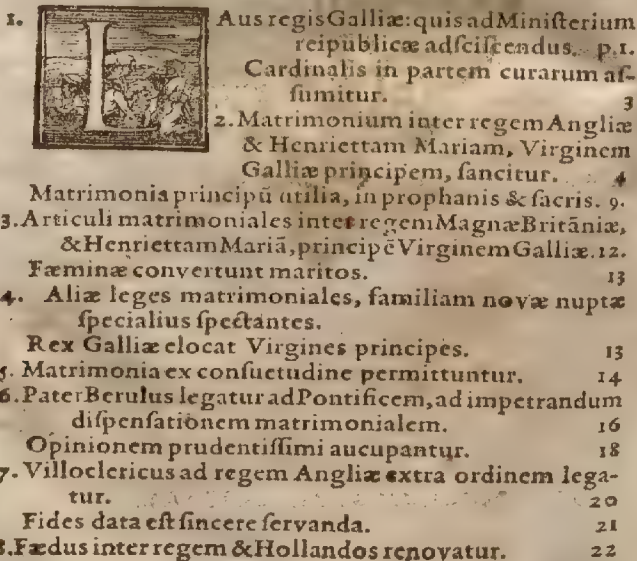 1. LAus regis Galliæ: quis ad Miniſterium
reipublicæ adſciſcendus. p.1.
Cardinalis in partem curarum aſ-
ſumitur. 3
2. Matrimonium inter regem Angliæ
& Henriettam Mariam, Virginem
Galliæ principem, ſancitur. 4
Matrimonia principũ utilia, in prophanis & ſacris. 9.
3. Articuli matrimoniales inter regem Magnæ Britãniæ,
& Henriettam Mariã, principẽ Virginem Galliæ. 12.
Fæminæ convertunt maritos. 13
4. Aliæ leges matrimoniales, familiam novæ nuptæ
ſpecialius ſpectantes.
Rex Galliæ elocat Virgines principes. 13
5. Matrimonia ex conſuetudine permittuntur. 14
6. Pater Berulus legatur ad Pontificem, ad impetrandum
diſpenſationem matrimonialem. 16
Opinionem prudentiſſimi aucupantur. 18
7. Villoclericus ad regem Angliæ extra ordinem lega-
tur. 20
Fides data eſt ſincere ſervanda. 21
8. Fædus inter regem & Hollandos renovatur. 22